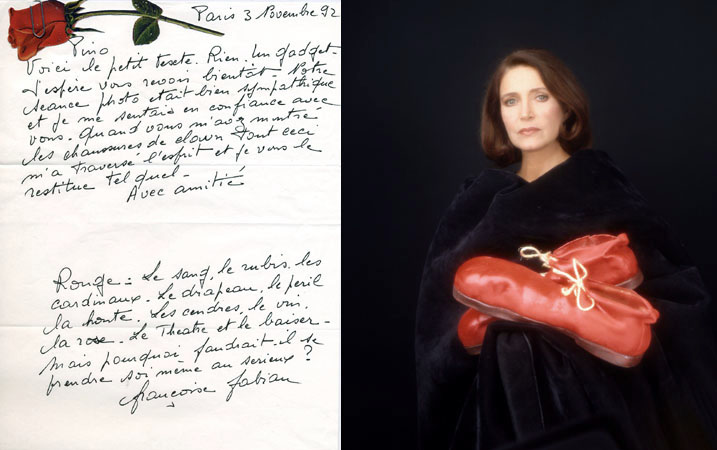 Paris 3 Novembre 92
Pino
Voici le petit texte. Rien. Un gadget.
J'espère vous revoir bientôt. Notre
séance photo était bien sympathique
et je me sentais en confiance avec
vous. Quand vous m'avez montré
les chaussures de clown tout ceci
m'a traversé l'esprit et je vous le
restitue tel quel.
Avec amitié
Rouge = Le sang, le rubis. les
cardinaux. Le drapeau, le péril
la honte. Les cendres, le vin.
la rose. Le Theatre et le baiser.
Mais pourquoi faudrait-il se
prendre soi même au serieux ?
françoise fabian